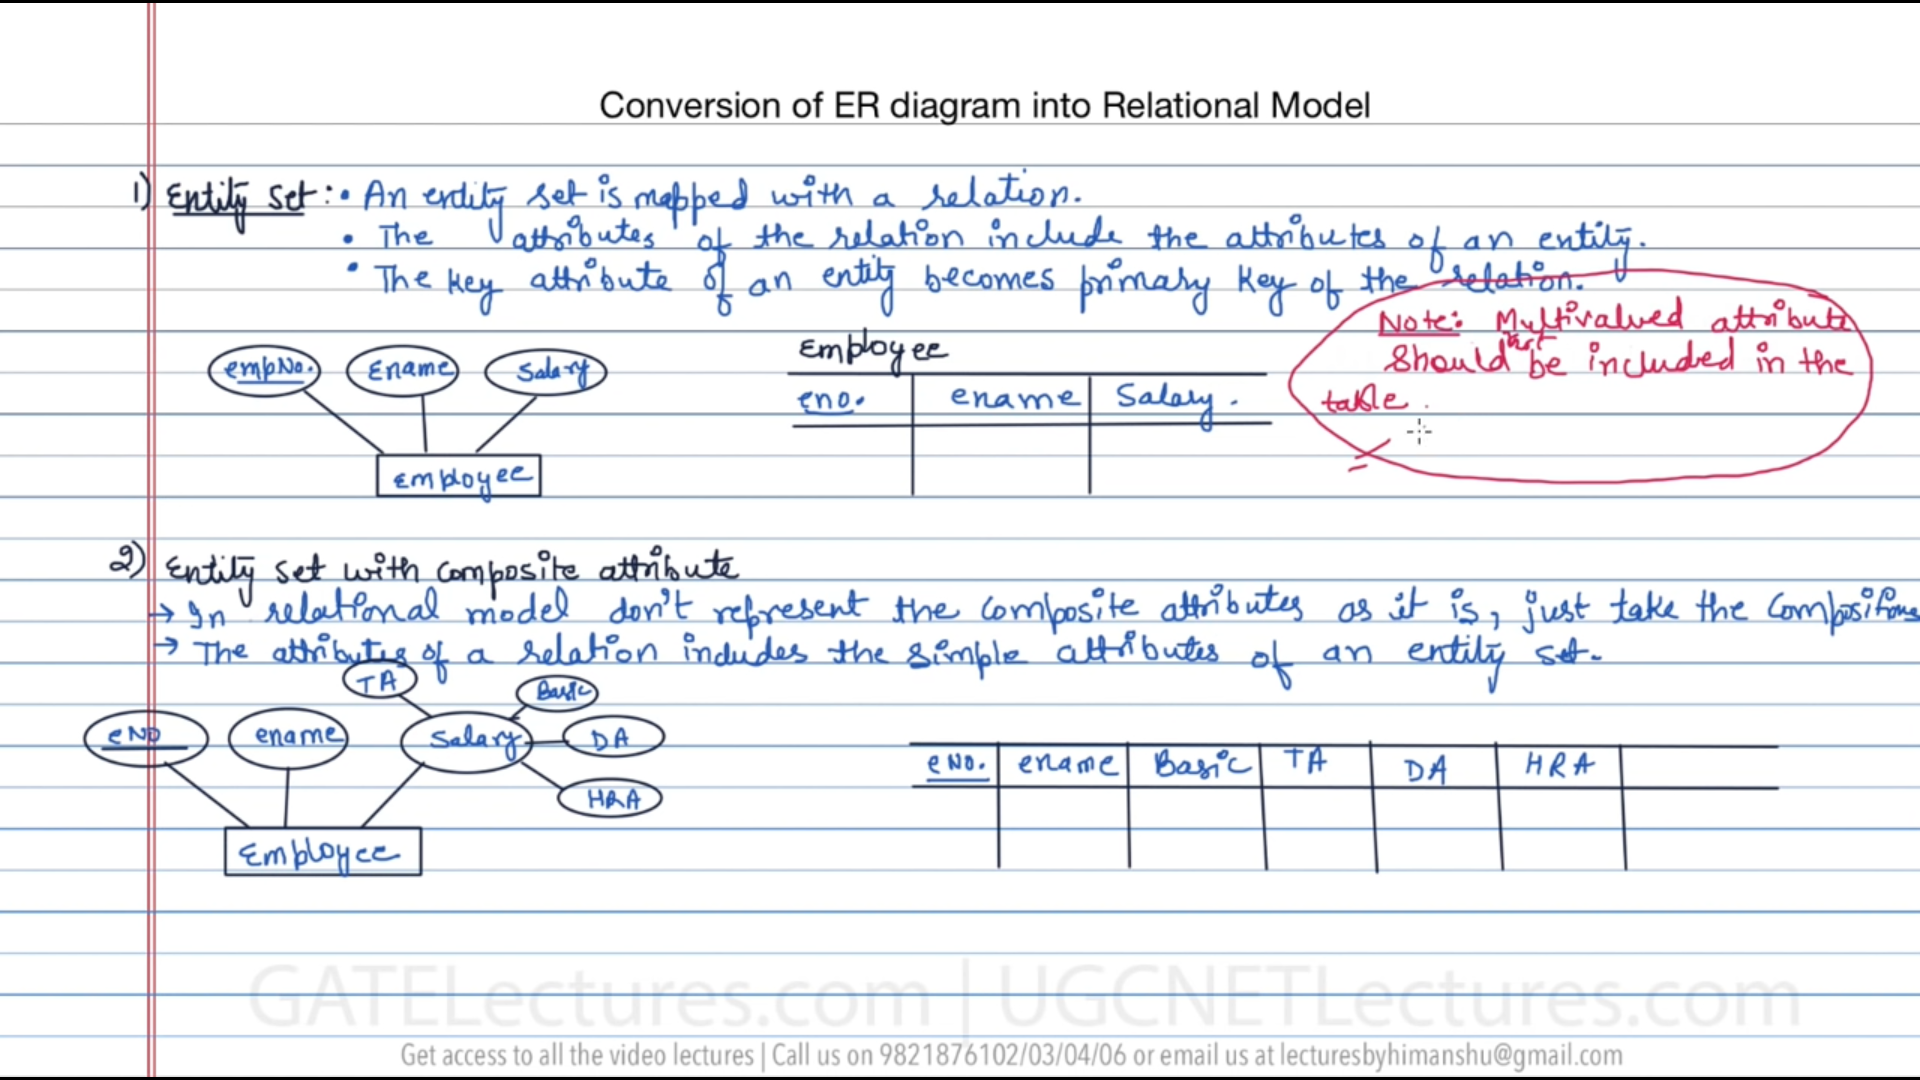 Conversion of ER diagram into Relational Model
1) Entity Set: • An entity set is mapped with a relation.
• The attributes of the relation include the attributes of an entity.
• The key attribute of an entity becomes primary key of the relation.
Note: Multivalued attribute
Should not be included in the
table.
empNo. Ename Salary
Employee
Employee
eno. ename Salary.
2) Entity set with composite attribute
→ In relational model don't represent the composite attributes as it is, just take the compositions
→ The attributes of a relation includes the simple attributes of an entity set.
TA Basic
eNO ename Salary DA
HRA
Employee
eNo. ename Basic TA DA HRA
GATELectures.com | UGCNETLectures.com
Get access to all the video lectures | Call us on 9821876102/03/04/06 or email us at lecturesbyhimanshu@gmail.com